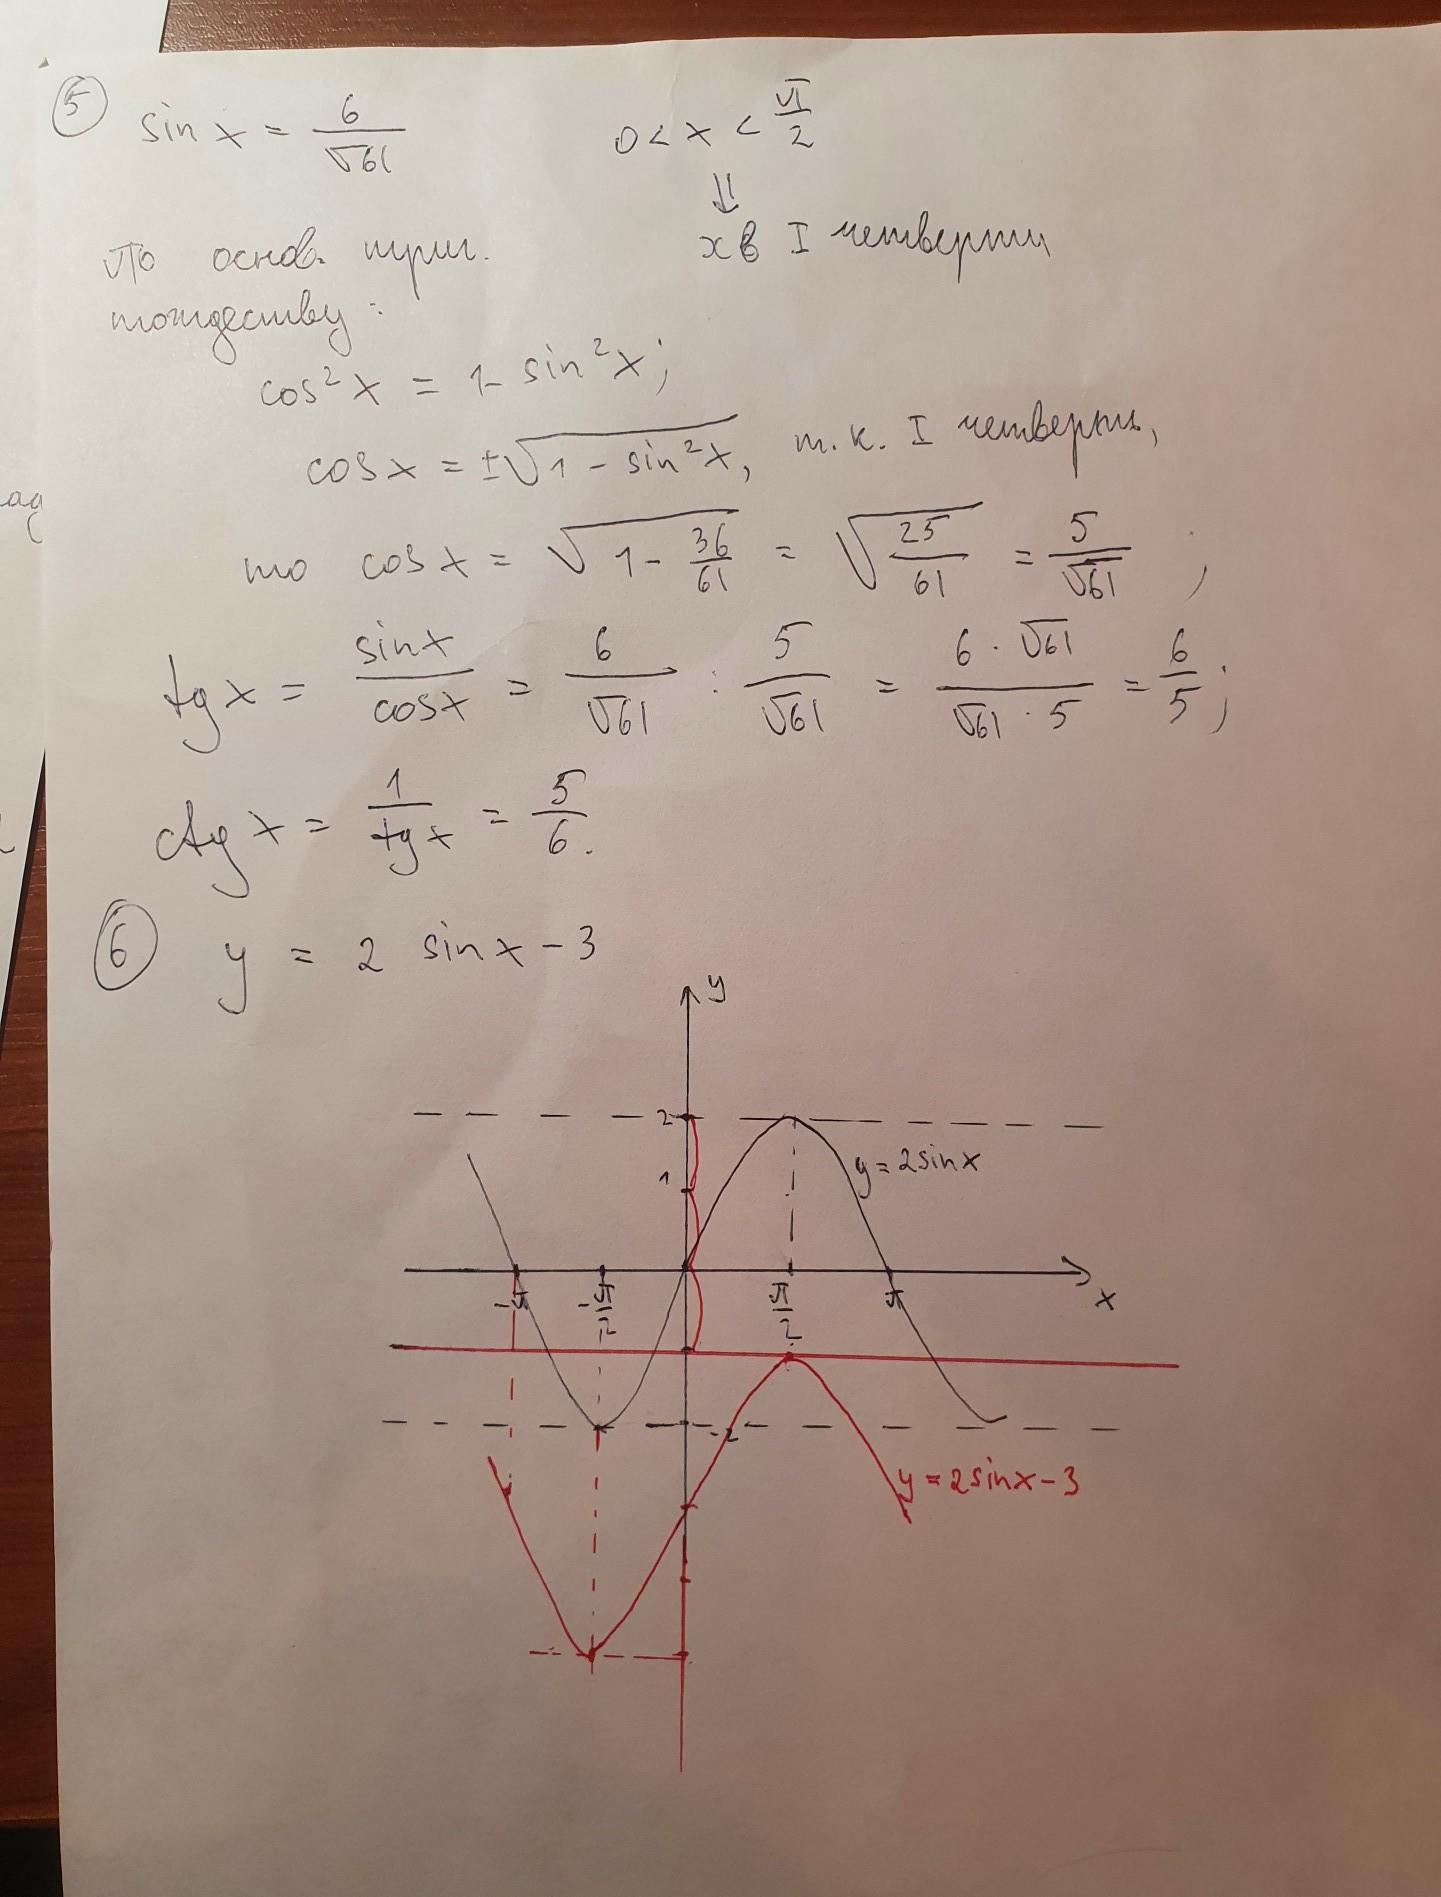 5 sin x = 6/√61    0 < x < π/2
⇓
По основ. триг.    x в I четверти
тождеству:
cos²x = 1 - sin²x;
cos x = ±√(1 - sin²x), т.к. I четверть,
то cos x = √(1 - 36/61) = √(25/61) = 5/√61;
tg x = sin x/cos x = 6/√61 : 5/√61 = 6·√61/√61·5 = 6/5;
ctg x = 1/tg x = 5/6.
6 y = 2 sin x - 3
y
2
y = 2 sin x
1
-π -π/2 π/2 π x
-2
y = 2 sin x - 3